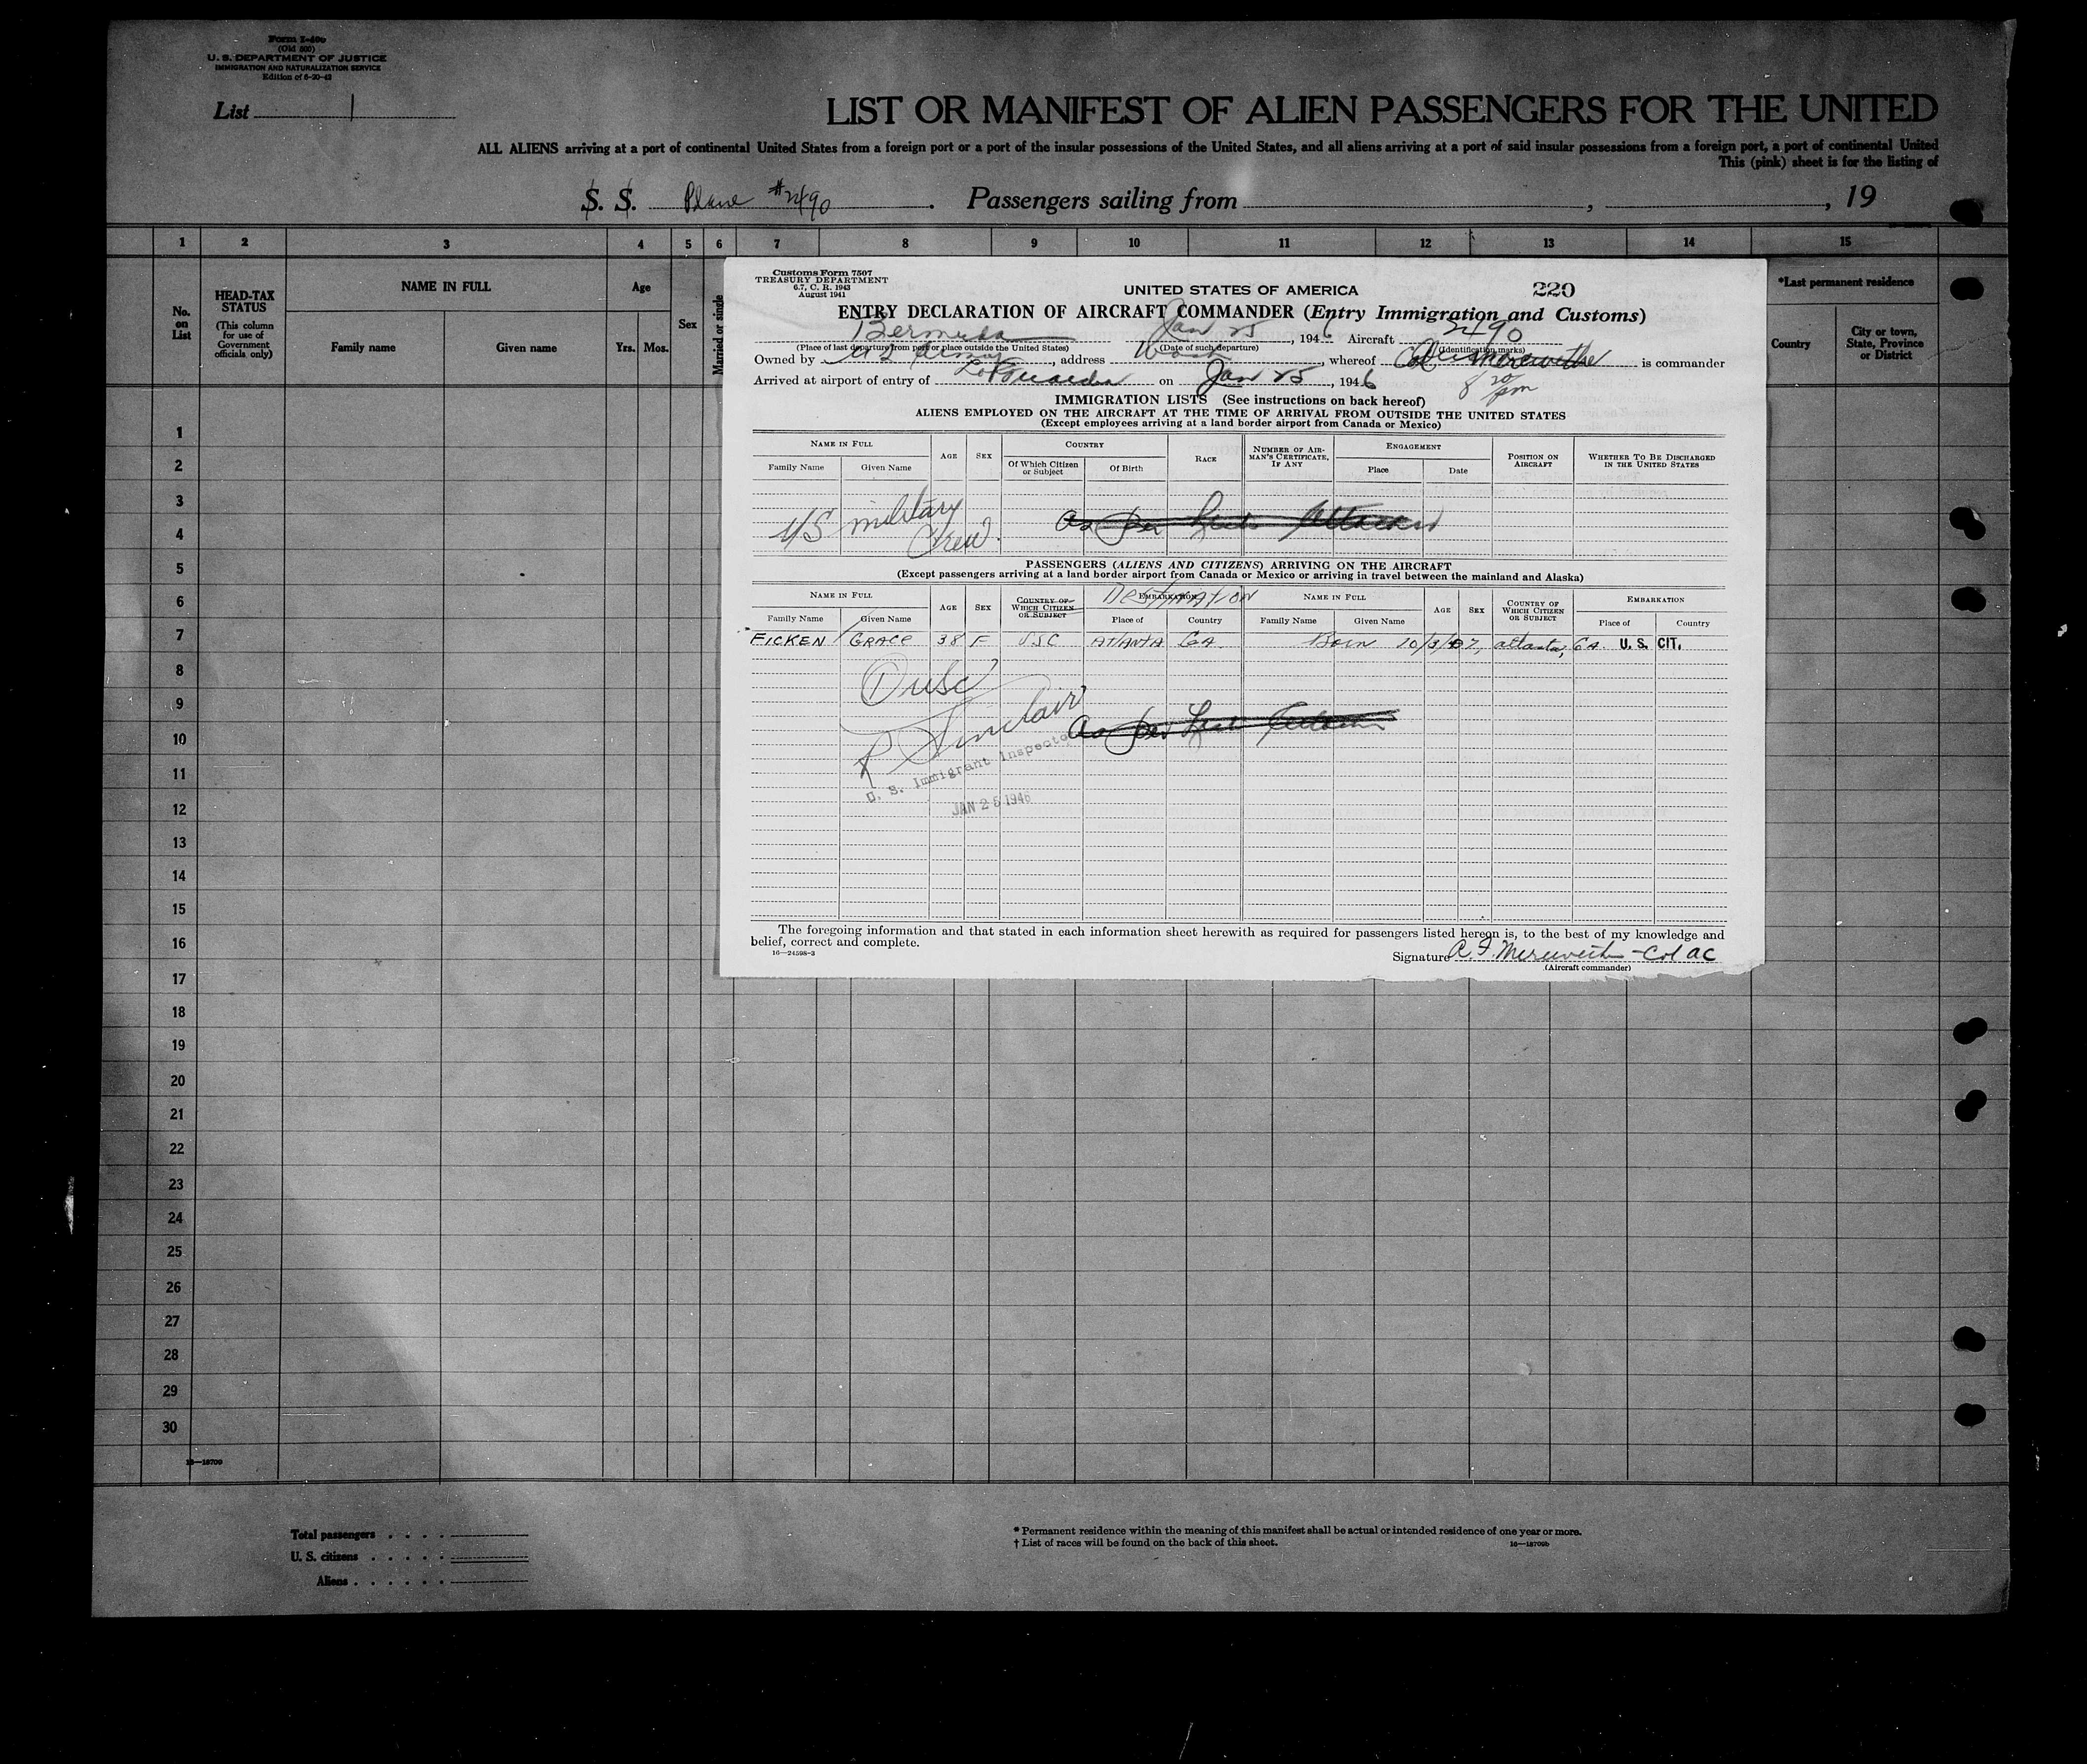 Form I-466
(Old 500)
U. S. DEPARTMENT OF JUSTICE
IMMIGRATION AND NATURALIZATION SERVICE
Edition of 6-20-42
List 1
LIST OR MANIFEST OF ALIEN PASSENGERS FOR THE UNITED
ALL ALIENS arriving at a port of continental United States from a foreign port or a port of the insular possessions of the United States, and all aliens arriving at a port of said insular possessions from a foreign port, a port of continental United
This (pink) sheet is for the listing of
S. S. Plane #2490. Passengers sailing from , , 19
1 2 3 4 5 6 7 8 9 10 11 12 13 14 15
No. on List
HEAD-TAX STATUS
(This column for use of Government officials only)
NAME IN FULL
Family name Given name
Age
Yrs. Mos.
Sex
Married or single
*Last permanent residence
Country
City or town, State, Province or District
1
2
3
4
5
6
7
8
9
10
11
12
13
14
15
16
17
18
19
20
21
22
23
24
25
26
27
28
29
30
Customs Form 7507
TREASURY DEPARTMENT
6.7, C. R. 1943
August 1941
UNITED STATES OF AMERICA 220
ENTRY DECLARATION OF AIRCRAFT COMMANDER (Entry Immigration and Customs)
Bermuda Jan 25, 1946 Aircraft 2490
(Place of last departure from port or place outside the United States) (Date of such departure) (Identification marks)
Owned by US Army, address Wash, whereof Col Merewether is commander
Arrived at airport of entry of LaGuardia on Jan 25, 1946 8 20 pm
IMMIGRATION LISTS (See instructions on back hereof)
ALIENS EMPLOYED ON THE AIRCRAFT AT THE TIME OF ARRIVAL FROM OUTSIDE THE UNITED STATES
(Except employees arriving at a land border airport from Canada or Mexico)
NAME IN FULL AGE SEX COUNTRY RACE NUMBER OF AIRMAN'S CERTIFICATE, IF ANY ENGAGEMENT POSITION ON AIRCRAFT WHETHER TO BE DISCHARGED IN THE UNITED STATES
Family Name Given Name Of Which Citizen or Subject Of Birth Place Date
US military Crew. As Per List Attached
PASSENGERS (ALIENS AND CITIZENS) ARRIVING ON THE AIRCRAFT
(Except passengers arriving at a land border airport from Canada or Mexico or arriving in travel between the mainland and Alaska)
NAME IN FULL AGE SEX COUNTRY OF WHICH CITIZEN OR SUBJECT EMBARKATION DESTINATION NAME IN FULL AGE SEX COUNTRY OF WHICH CITIZEN OR SUBJECT EMBARKATION
Family Name Given Name Place of Country Family Name Given Name Place of Country
FICKEN GRACE 38 F USC ATLANTA GA. Born 10/3/07, atlanta, GA. U. S. CIT.
1 USC
R Sinclair
As Per List Attached
U. S. Immigrant Inspector
JAN 25 1946
The foregoing information and that stated in each information sheet herewith as required for passengers listed hereon is, to the best of my knowledge and
belief, correct and complete.
16—24598-3
Signature A. F. Merewether - Col AC
(Aircraft commander)
16—18709
Total passengers . . . .
U. S. citizens . . . . .
Aliens . . . . . .
* Permanent residence within the meaning of this manifest shall be actual or intended residence of one year or more.
† List of races will be found on the back of this sheet.
16—18709b